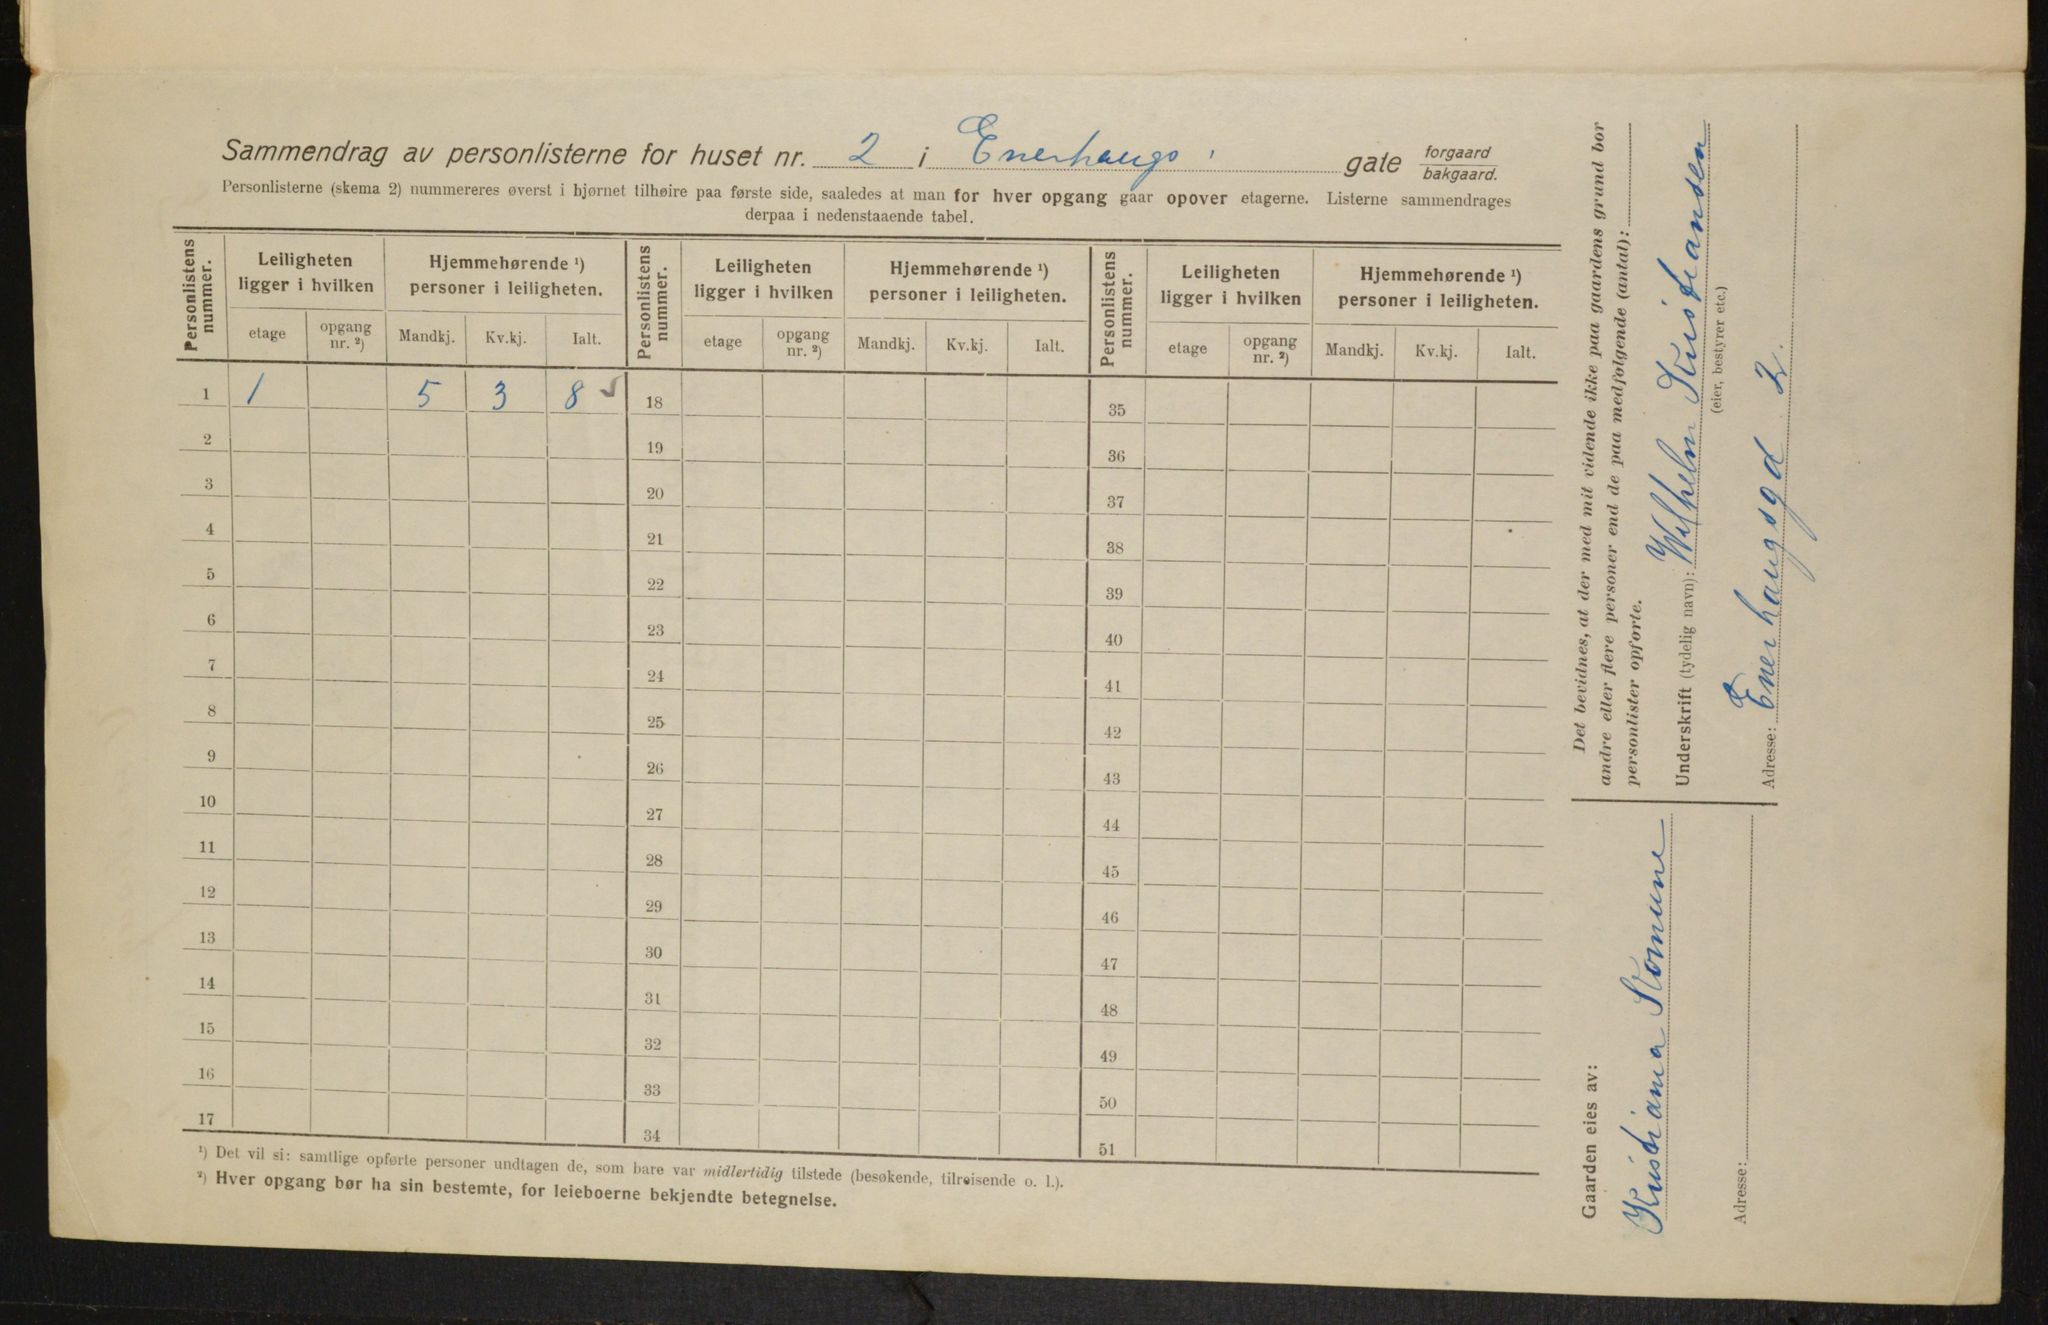 Sammendrag av personlisterne for huset nr. 2 i Enerhaugs gate forgaard bakgaard.
Personlisterne (skema 2) nummereres øverst i bjørnet tilhøire paa første side, saaledes at man for hver opgang gaar opover etagerne. Listerne sammendrages
derpaa i nedenstaaende tabel.
Personlistens nummer. Leiligheten ligger i hvilken Hjemmehørende ¹) personer i leiligheten. Personlistens nummer. Leiligheten ligger i hvilken Hjemmehørende ¹) personer i leiligheten. Personlistens nummer. Leiligheten ligger i hvilken Hjemmehørende ¹) personer i leiligheten.
etage opgang nr. ²) Mandkj. Kv.kj. Ialt. etage opgang nr. ²) Mandkj. Kv.kj. Ialt. etage opgang nr. ²) Mandkj. Kv.kj. Ialt.
1 1 5 3 8 18 35
2 19 36
3 20 37
4 21 38
5 22 39
6 23 40
7 24 41
8 25 42
9 26 43
10 27 44
11 28 45
12 29 46
13 30 47
14 31 48
15 32 49
16 33 50
17 34 51
¹) Det vil si: samtlige opførte personer undtagen de, som bare var midlertidig tilstede (besøkende, tilreisende o. l.).
²) Hver opgang bør ha sin bestemte, for leieboerne bekjendte betegnelse.
Det bevidnes, at der med mit vidende ikke paa gaardens grund bor
andre eller flere personer end de paa medfølgende (antal):
personlister opførte.
Underskrift (tydelig navn): Wilhelm Kristiansen
(eier, bestyrer etc.)
Adresse: Enerhaugsgd 2.
Gaarden eies av:
Kristiania Komune
Adresse: